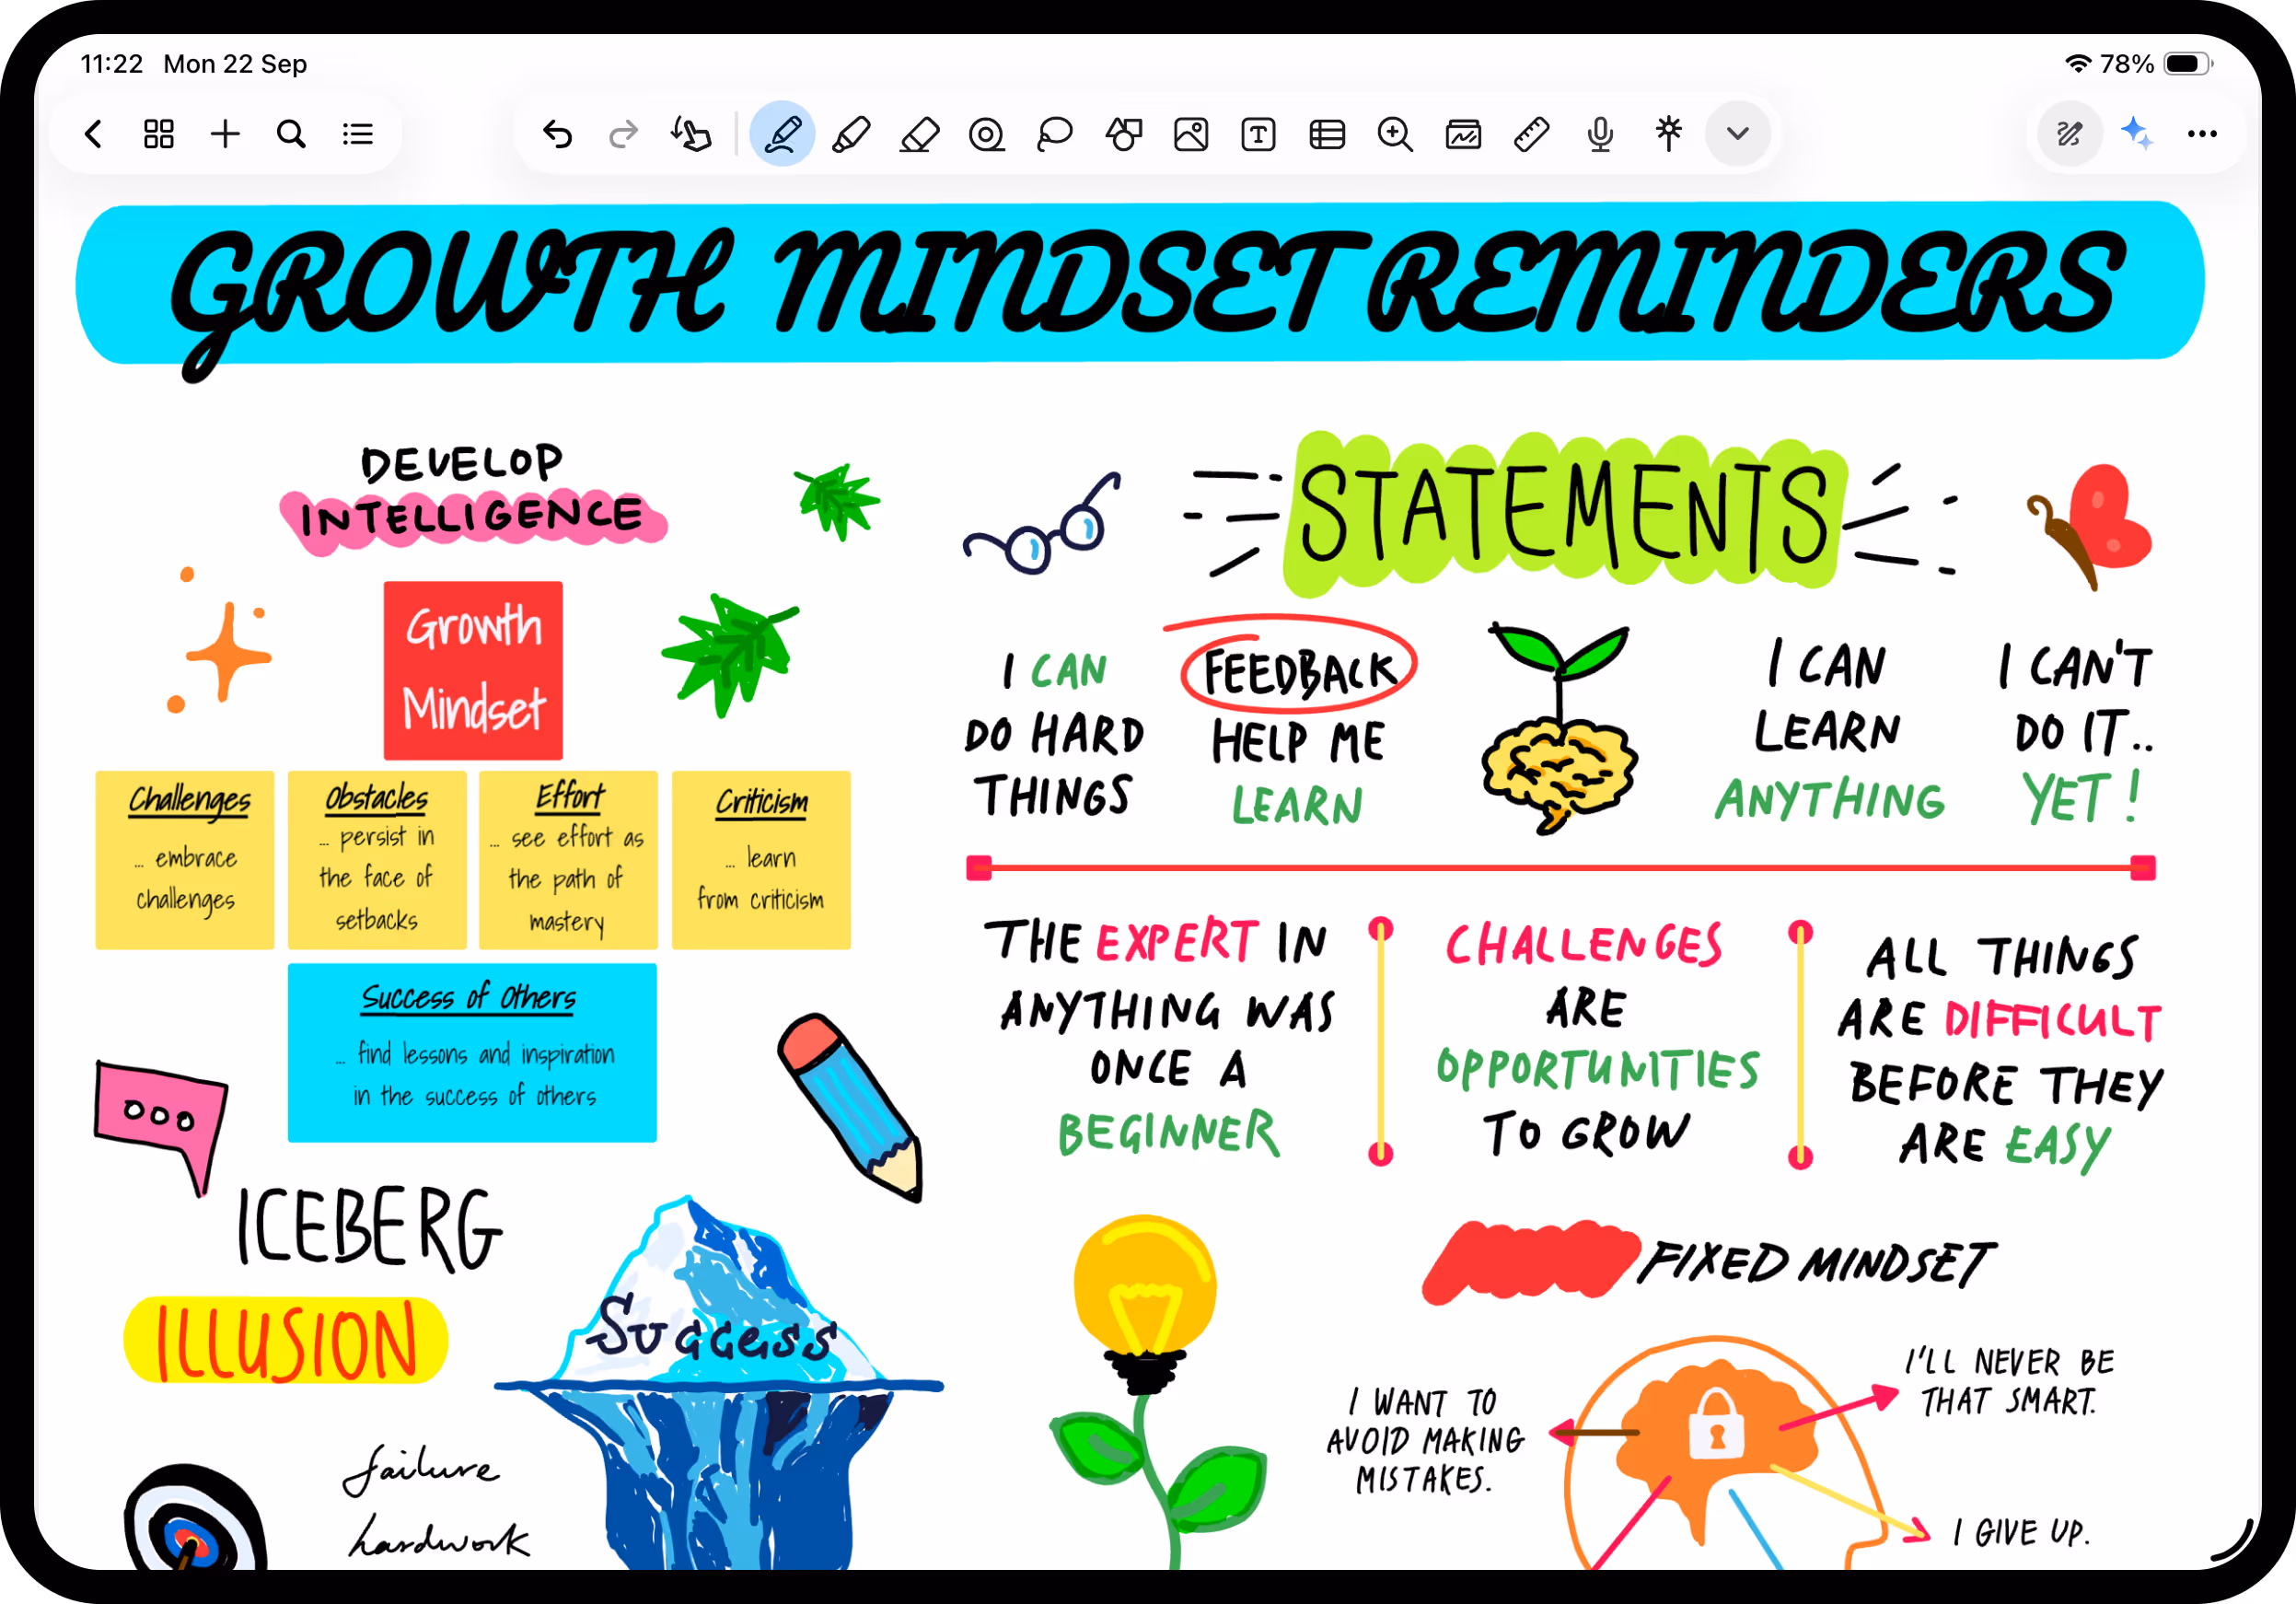 11:22 Mon 22 Sep
78%
GROWTH MINDSET REMINDERS
DEVELOP
INTELLIGENCE
Growth
Mindset
Challenges
... embrace
challenges
Obstacles
... persist in
the face of
setbacks
Effort
... see effort as
the path of
mastery
Criticism
... learn
from criticism
Success of Others
... find lessons and inspiration
in the success of others
ICEBERG
ILLUSION
Success
failure
hardwork
STATEMENTS
I CAN
DO HARD
THINGS
FEEDBACK
HELP ME
LEARN
I CAN
LEARN
ANYTHING
I CAN'T
DO IT..
YET!
THE EXPERT IN
ANYTHING WAS
ONCE A
BEGINNER
CHALLENGES
ARE
OPPORTUNITIES
TO GROW
ALL THINGS
ARE DIFFICULT
BEFORE THEY
ARE EASY
FIXED MINDSET
I WANT TO
AVOID MAKING
MISTAKES.
I'LL NEVER BE
THAT SMART.
I GIVE UP.